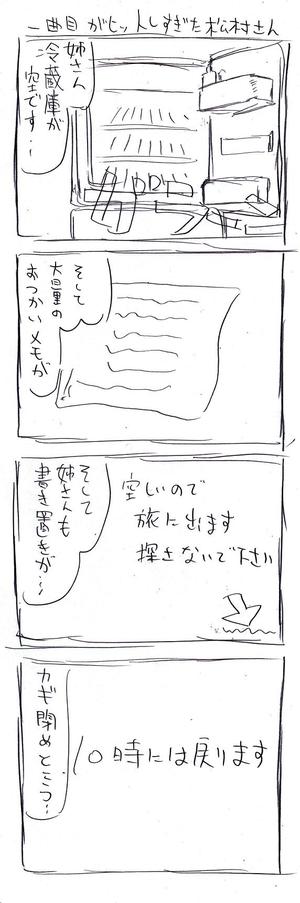 一曲目がヒットしすぎた松村さん
姉さん
冷蔵庫が
空です…
そして
大量の
おつかいメモが
そして
姉さんも
書き置きが…
空しいので
旅に出ます
探さないで下さい
カギ閉めとこつ…
10時には戻ります